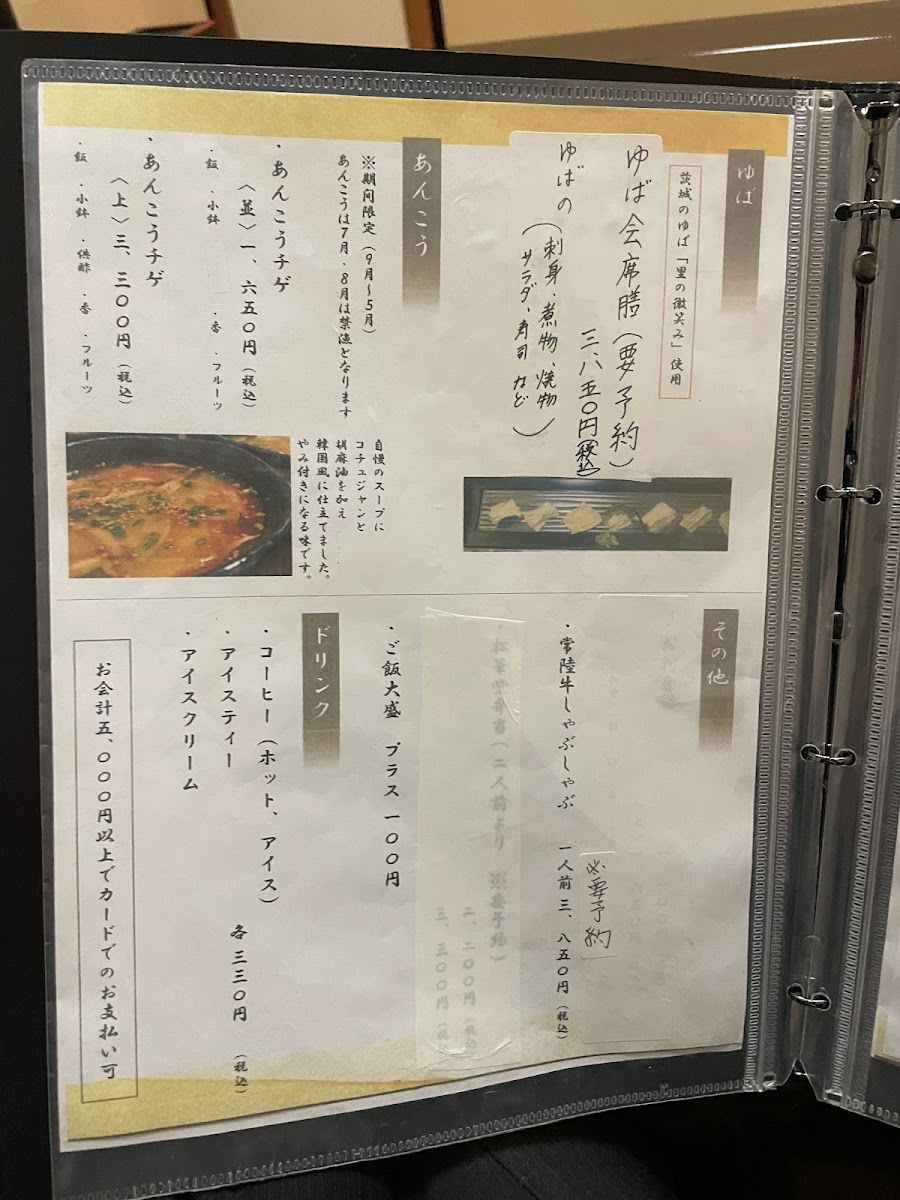 ゆば
茨城のゆば「里の微笑み」使用
ゆば会席膳(要予約)
三、八五〇円(税込)
ゆばの(刺身、煮物、焼物
サラダ、寿司など)
あんこう
※期間限定(9月~5月)
あんこうは7月、8月は禁漁となります
・あんこうチゲ
〈並〉一、六五〇円(税込)
・飯 ・小鉢 ・香 ・フルーツ
・あんこうチゲ
〈上〉三、三〇〇円(税込)
・飯 ・小鉢 ・供酢 ・香 ・フルーツ
自慢のスープに
コチュジャンと
胡麻油を加え
韓国風に仕立てました。
やみ付きになる味です。
その他
必要予約
・常陸牛しゃぶしゃぶ 一人前 三、八五〇円(税込)
・松華堂弁当(二人前より ※要予約)
二、二〇〇円(税込
三、三〇〇円(税込
・ご飯大盛 プラス一〇〇円
ドリンク
・コーヒー(ホット、アイス)
・アイスティー
・アイスクリーム
各 三三〇円(税込)
お会計五、〇〇〇円以上でカードでのお支払い可